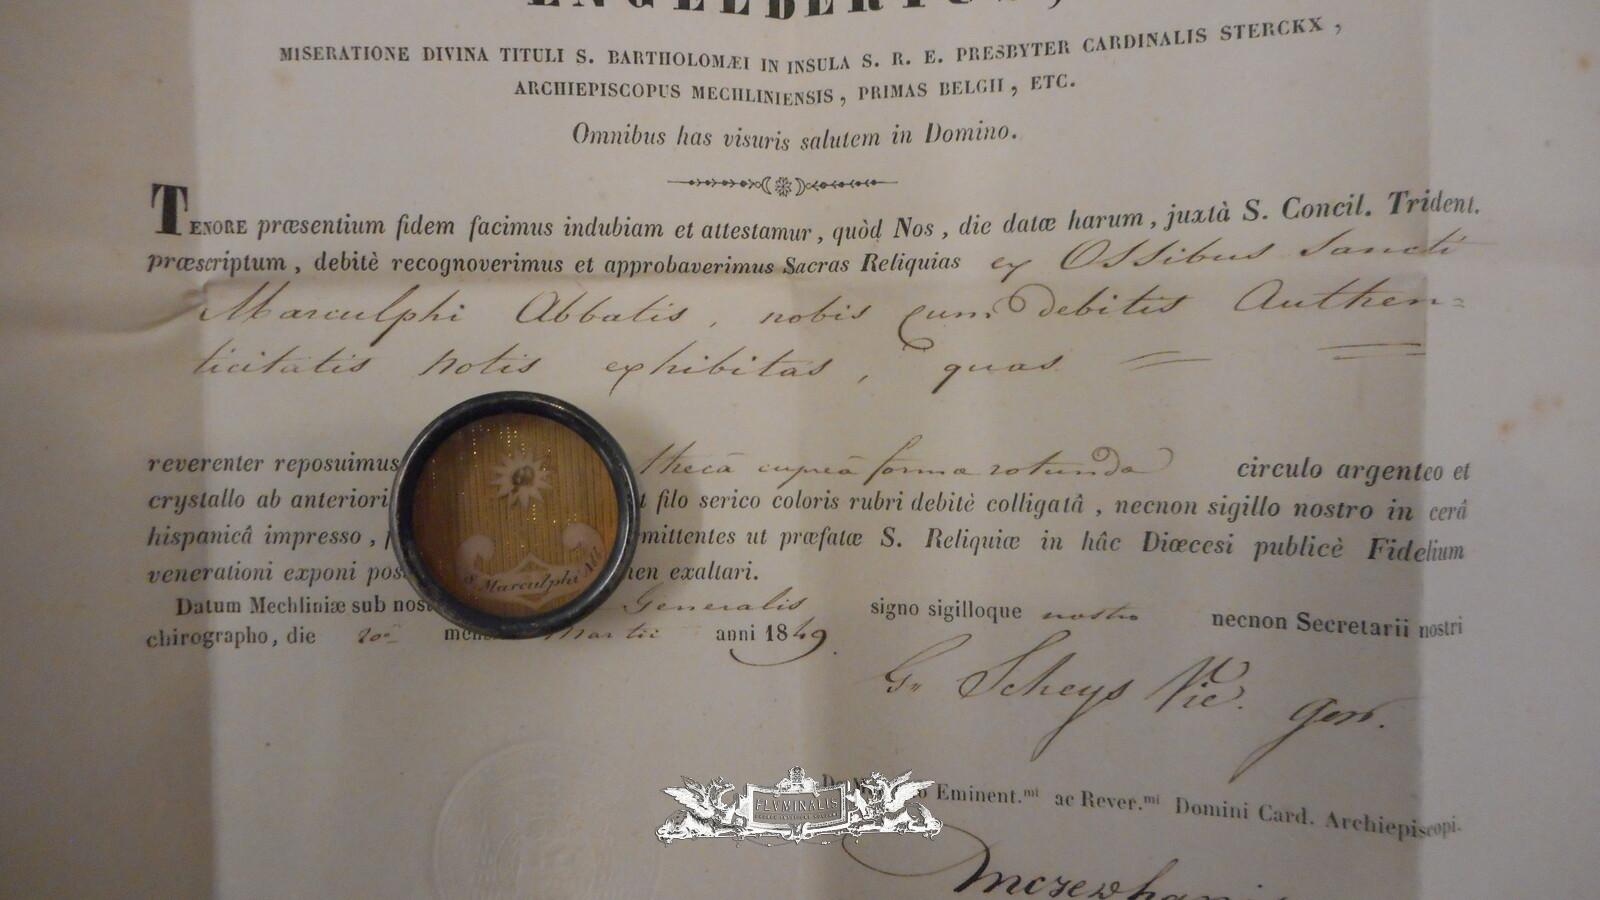 ENGELBERTUS,
MISERATIONE DIVINA TITULI S. BARTHOLOMÆI IN INSULA S. R. E. PRESBYTER CARDINALIS STERCKX,
ARCHIEPISCOPUS MECHLINIENSIS, PRIMAS BELGII, ETC.
Omnibus has visuris salutem in Domino.
TENORE præsentium fidem facimus indubiam et attestamur, quòd Nos, die datæ harum, juxtà S. Concil. Trident.
præscriptum, debitè recognoverimus et approbaverimus Sacras Reliquias ex Ossibus Sancti
Marculphi Abbatis, nobis cum debitis Authen=
ticitatis notis exhibitas, quas
reverenter reposuimus thecâ cupreâ formæ rotundæ circulo argenteo et
crystallo ab anteriori t filo serico coloris rubri debitè colligatâ, necnon sigillo nostro in cerâ
hispanicâ impresso, p mittentes ut præfatæ S. Reliquiæ in hâc Diœcesi publicè Fidelium
venerationi exponi pos en exaltari.
S. Marculphi Ab.
Datum Mechliniæ sub nost Generalis signo sigilloque nostro necnon Secretarii nostri
chirographo, die 20â mens Martii anni 1849.
G. Scheys Vic. gen.
De M o Eminent.mi ac Rever.mi Domini Card. Archiepiscopi.
FLUMINALIS